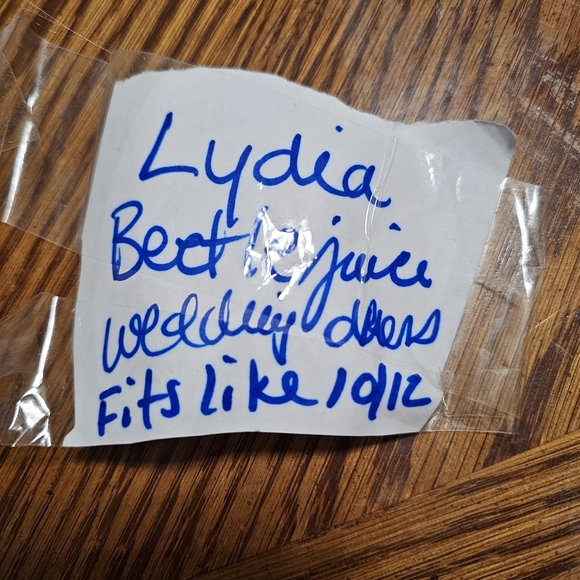 Lydia
Beetlejuice
wedding dress
Fits like 10/12